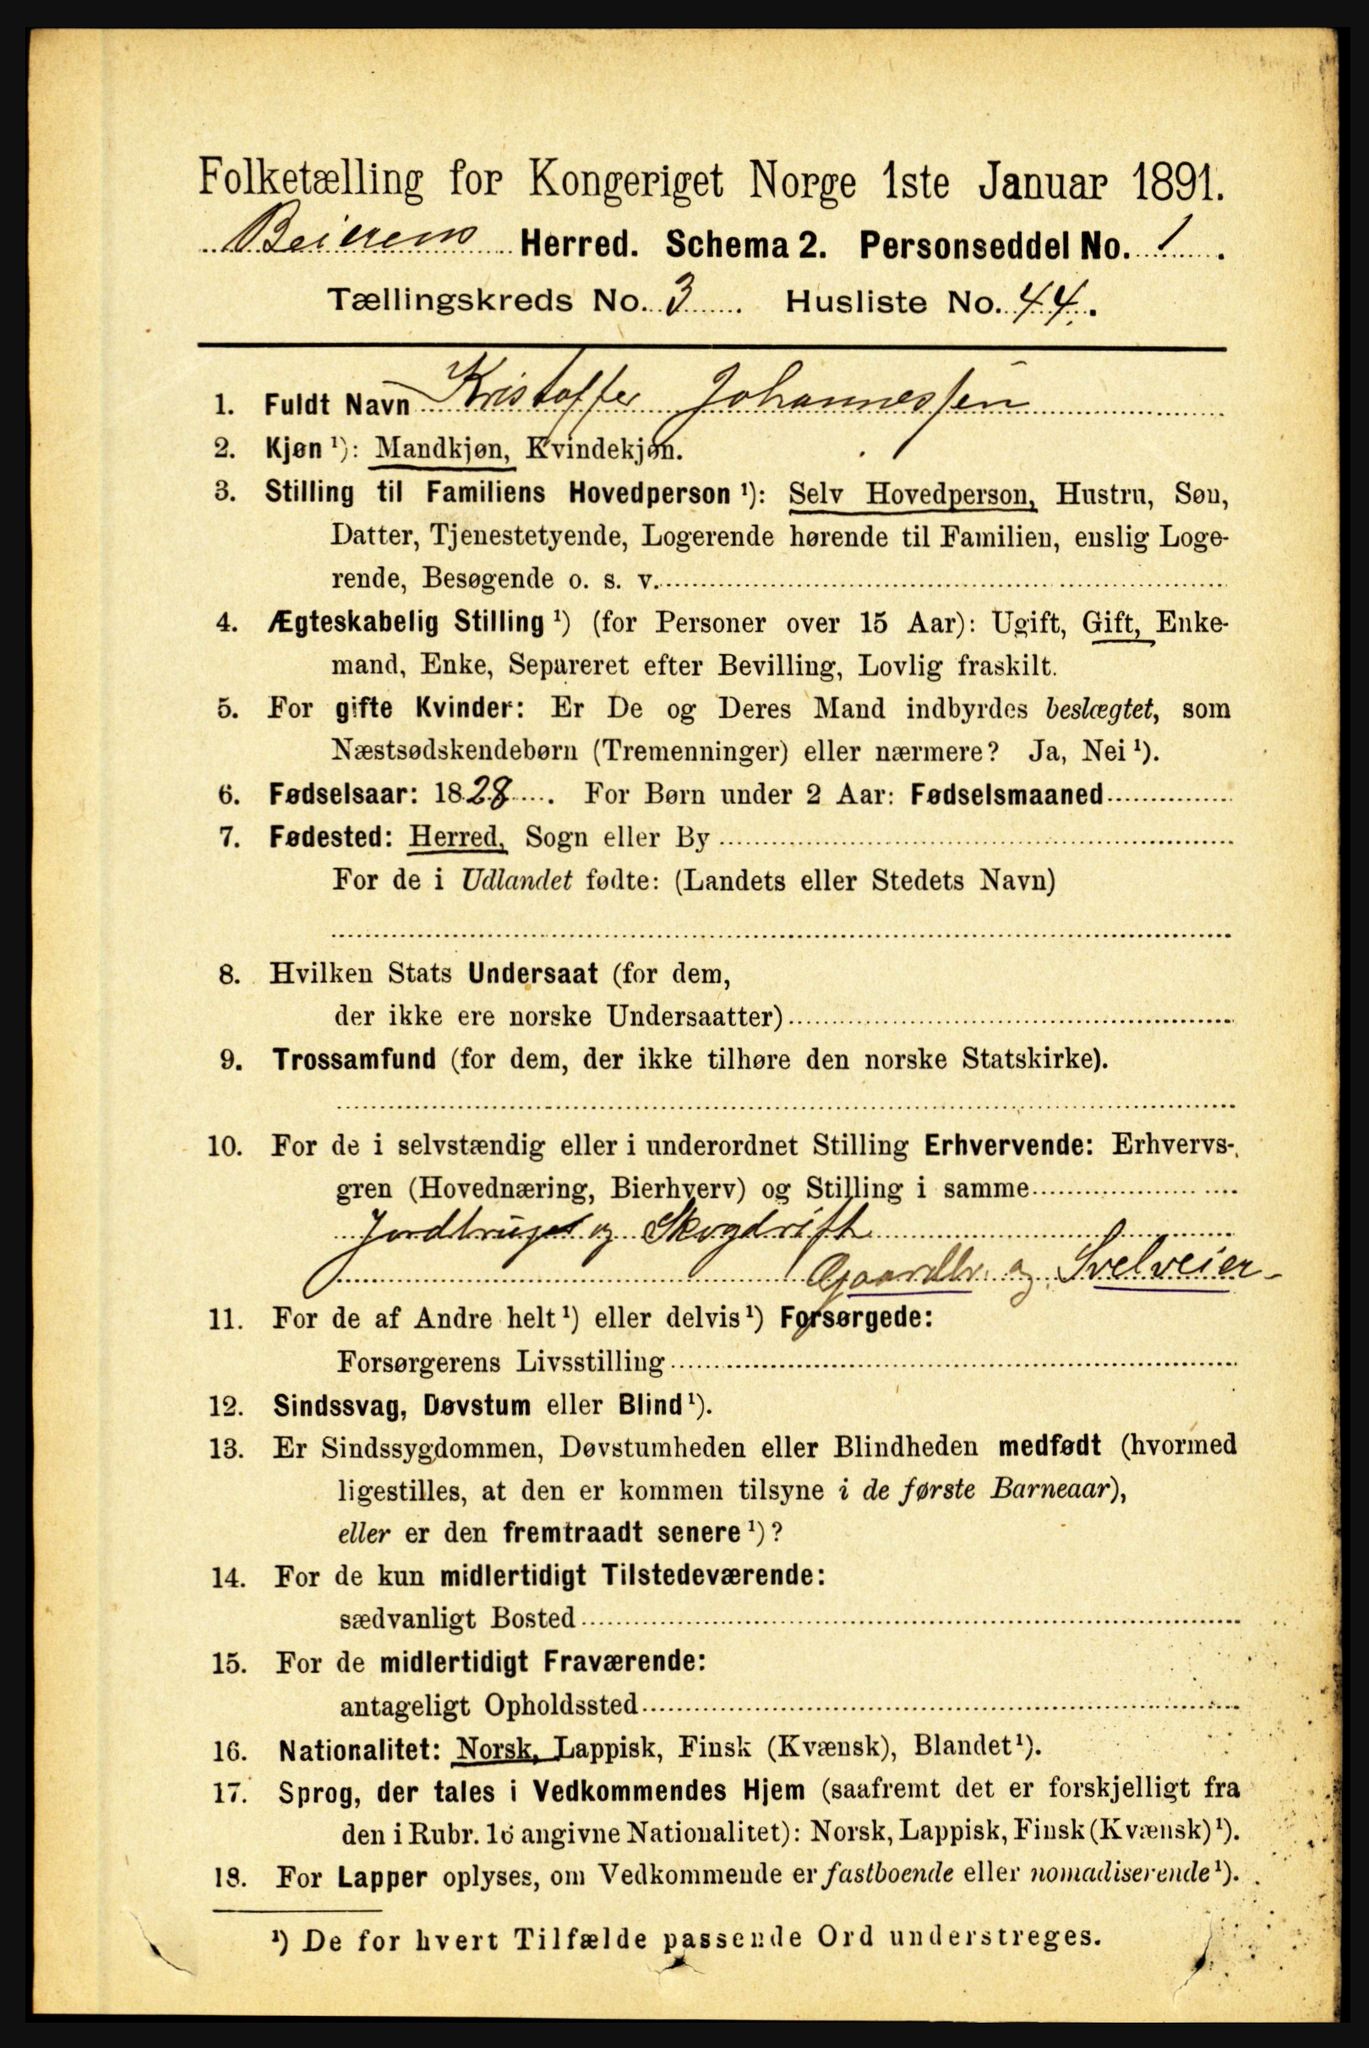 Folketælling for Kongeriget Norge 1ste Januar 1891.
Beierens Herred. Schema 2. Personseddel No. 1.
Tællingskreds No. 3. Husliste No. 44.
1. Fuldt Navn Kristoffer Johannessen
2. Kjøn ¹): Mandkjøn, Kvindekjøn.
3. Stilling til Familiens Hovedperson ¹): Selv Hovedperson, Hustru, Søn,
Datter, Tjenestetyende, Logerende hørende til Familien, enslig Loge-
rende, Besøgende o. s. v.
4. Ægteskabelig Stilling ¹) (for Personer over 15 Aar): Ugift, Gift, Enke-
mand, Enke, Separeret efter Bevilling, Lovlig fraskilt.
5. For gifte Kvinder: Er De og Deres Mand indbyrdes beslægtet, som
Næstsødskendebørn (Tremenninger) eller nærmere? Ja, Nei ¹).
6. Fødselsaar: 1828. For Børn under 2 Aar: Fødselsmaaned
7. Fødested: Herred, Sogn eller By
For de i Udlandet fødte: (Landets eller Stedets Navn)
8. Hvilken Stats Undersaat (for dem,
der ikke ere norske Undersaatter)
9. Trossamfund (for dem, der ikke tilhøre den norske Statskirke).
10. For de i selvstændig eller i underordnet Stilling Erhvervende: Erhvervs-
gren (Hovednæring, Bierhverv) og Stilling i samme
Jordbruget og Skogdrift
Gaardbr. og Svelveier
11. For de af Andre helt ¹) eller delvis ¹) Forsørgede:
Forsørgerens Livsstilling
12. Sindssvag, Døvstum eller Blind ¹).
13. Er Sindssygdommen, Døvstumheden eller Blindheden medfødt (hvormed
ligestilles, at den er kommen tilsyne i de første Barneaar),
eller er den fremtraadt senere ¹)?
14. For de kun midlertidigt Tilstedeværende:
sædvanligt Bosted
15. For de midlertidigt Fraværende:
antageligt Opholdssted
16. Nationalitet: Norsk, Lappisk, Finsk (Kvænsk), Blandet ¹).
17. Sprog, der tales i Vedkommendes Hjem (saafremt det er forskjelligt fra
den i Rubr. 16 angivne Nationalitet): Norsk, Lappisk, Finsk (Kvænsk) ¹).
18. For Lapper oplyses, om Vedkommende er fastboende eller nomadiserende ¹).
¹) De for hvert Tilfælde passende Ord understreges.